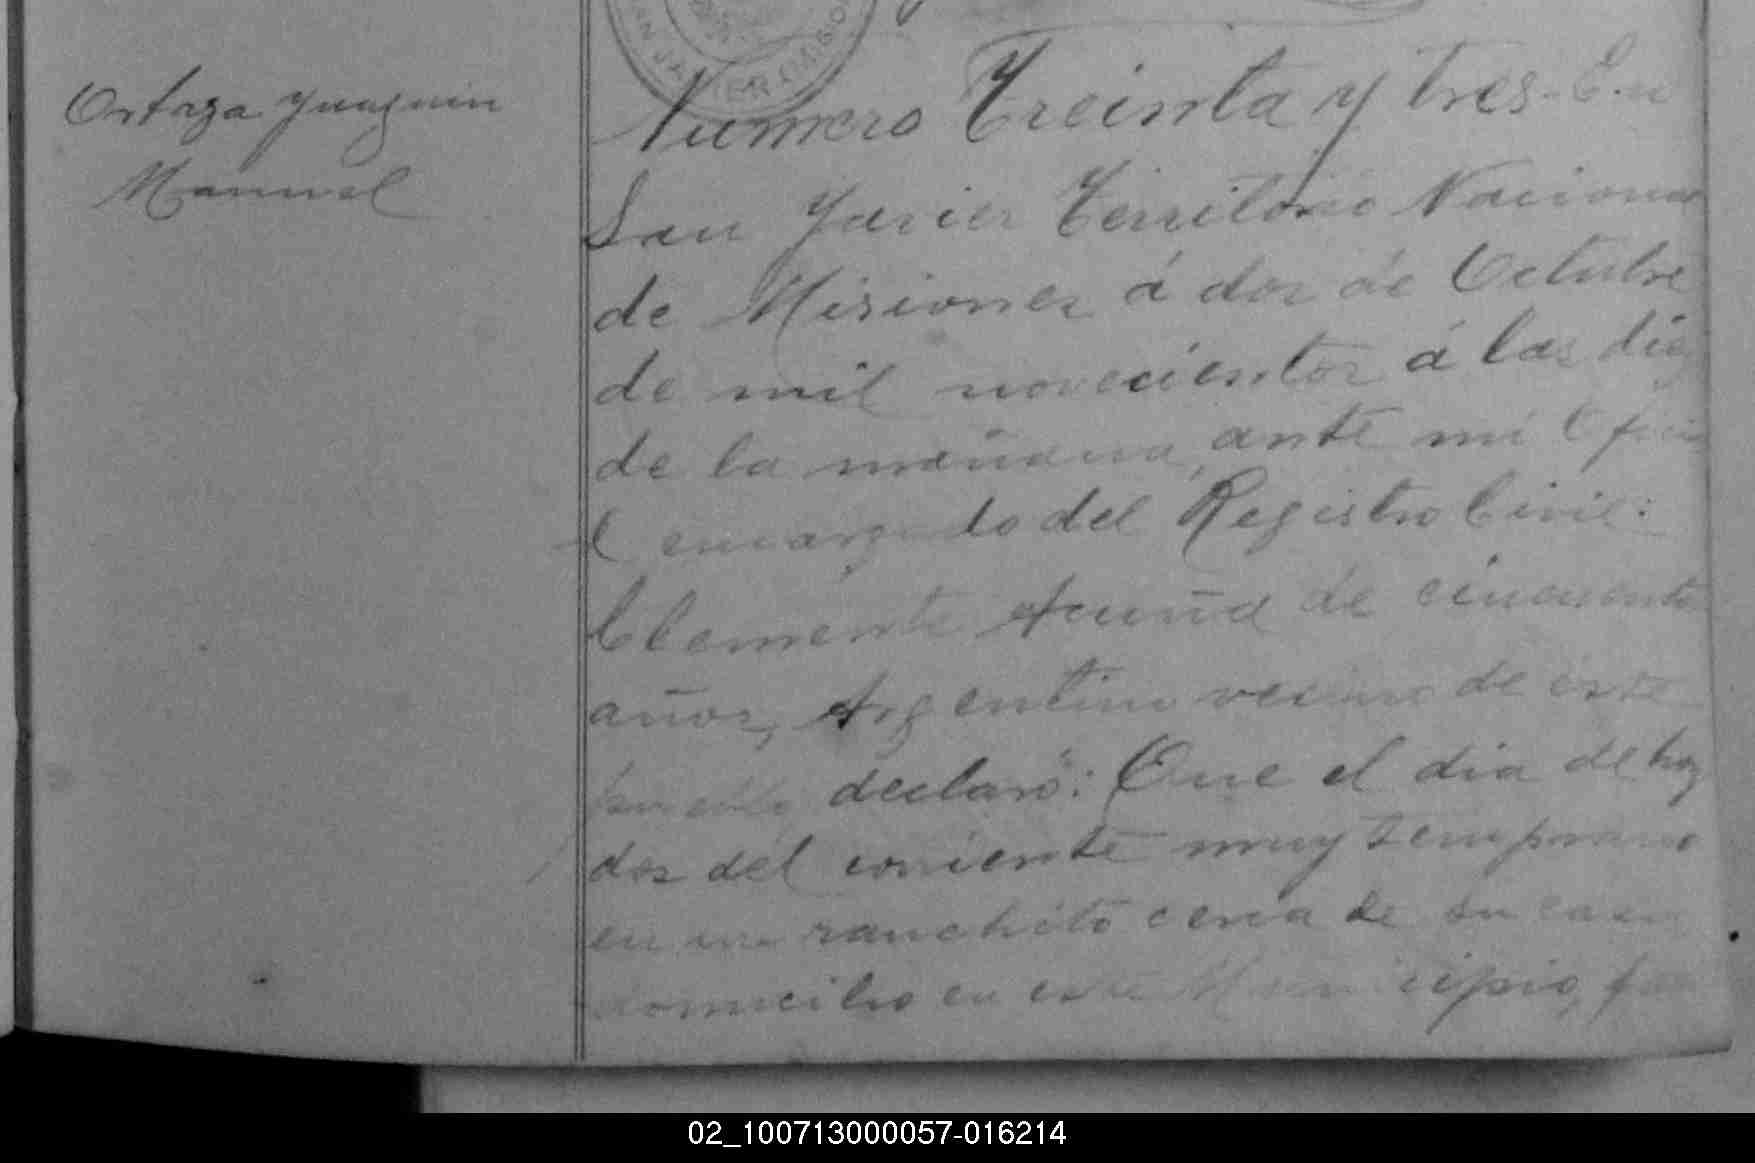 SAN JAVIER
Ortega Juaquin
Manuel
Numero Treinta y tres. En
San Javier Territorio Nacional
de Misiones á dos de Octubre
de mil novecientos á las diez
de la mañana, ante mi Ofici
l encargado del Registro Civil:
Clemente Acuña de cincuenta
años, Argentino vecino de este
pueblo declaró: Que el dia de hoy
dos del corriente muy temprano
en un ranchito cerca de su casa
domicilio en este Municipio,
02_100713000057-016214